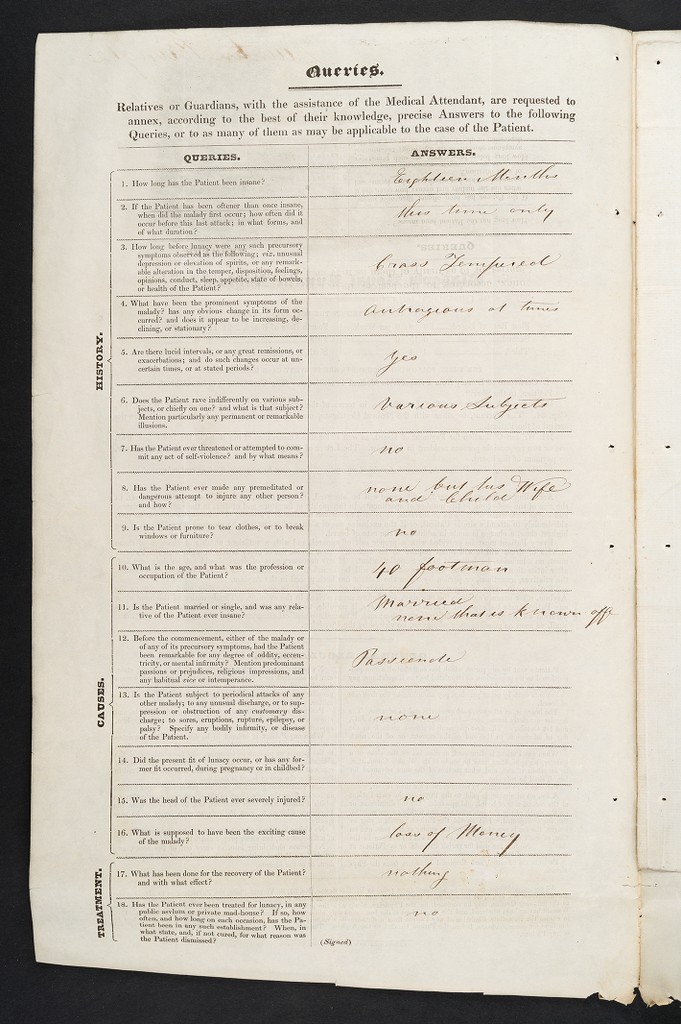 Queries.
Relatives or Guardians, with the assistance of the Medical Attendant, are requested to
annex, according to the best of their knowledge, precise Answers to the following
Queries, or to as many of them as may be applicable to the case of the Patient.
QUERIES.
ANSWERS.
HISTORY.
1. How long has the Patient been insane?
Eighteen Months
2. If the Patient has been oftener than once insane,
when did the malady first occur; how often did it
occur before this last attack; in what forms, and
of what duration?
this time only
3. How long before lunacy were any such precursory
symptoms observed as the following; viz. unusual
depression or elevation of spirits, or any remark-
able alteration in the temper, disposition, feelings,
opinions, conduct, sleep, appetite, state of bowels,
or health of the Patient?
Cross Tempered
4. What have been the prominent symptoms of the
malady? has any obvious change in its form oc-
curred? and does it appear to be increasing, de-
clining, or stationary?
outragious at times
5. Are there lucid intervals, or any great remissions, or
exacerbations; and do such changes occur at un-
certain times, or at stated periods?
Yes
6. Does the Patient rave indifferently on various sub-
jects, or chiefly on one? and what is that subject?
Mention particularly any permanent or remarkable
illusions.
Various Subjects
7. Has the Patient ever threatened or attempted to com-
mit any act of self-violence? and by what means?
no
8. Has the Patient ever made any premeditated or
dangerous attempt to injure any other person?
and how?
none but his Wife
and Child
9. Is the Patient prone to tear clothes, or to break
windows or furniture?
no
CAUSES.
10. What is the age, and what was the profession or
occupation of the Patient?
40 footman
11. Is the Patient married or single, and was any rela-
tive of the Patient ever insane?
Married
none that is known off
12. Before the commencement, either of the malady or
of any of its precursory symptoms, had the Patient
been remarkable for any degree of oddity, eccen-
tricity, or mental infirmity? Mention predominant
passions or prejudices, religious impressions, and
any habitual vice or intemperance.
13. Is the Patient subject to periodical attacks of any
other malady; to any unusual discharge, or to sup-
pression or obstruction of any customary dis-
charge; to sores, eruptions, rupture, epilepsy, or
palsy? Specify any bodily infirmity, or disease
of the Patient.
none
14. Did the present fit of lunacy occur, or has any for-
mer fit occurred, during pregnancy or in childbed?
15. Was the head of the Patient ever severely injured?
no
16. What is supposed to have been the exciting cause
of the malady?
loss of Money
TREATMENT.
17. What has been done for the recovery of the Patient?
and with what effect?
nothing
18. Has the Patient ever been treated for lunacy, in any
public asylum or private mad-house? If so, how
often, and how long on each occasion, has the Pa-
tient been in any such establishment? When, in
what state, and, if not cured, for what reason was
the Patient dismissed?
no
(Signed)